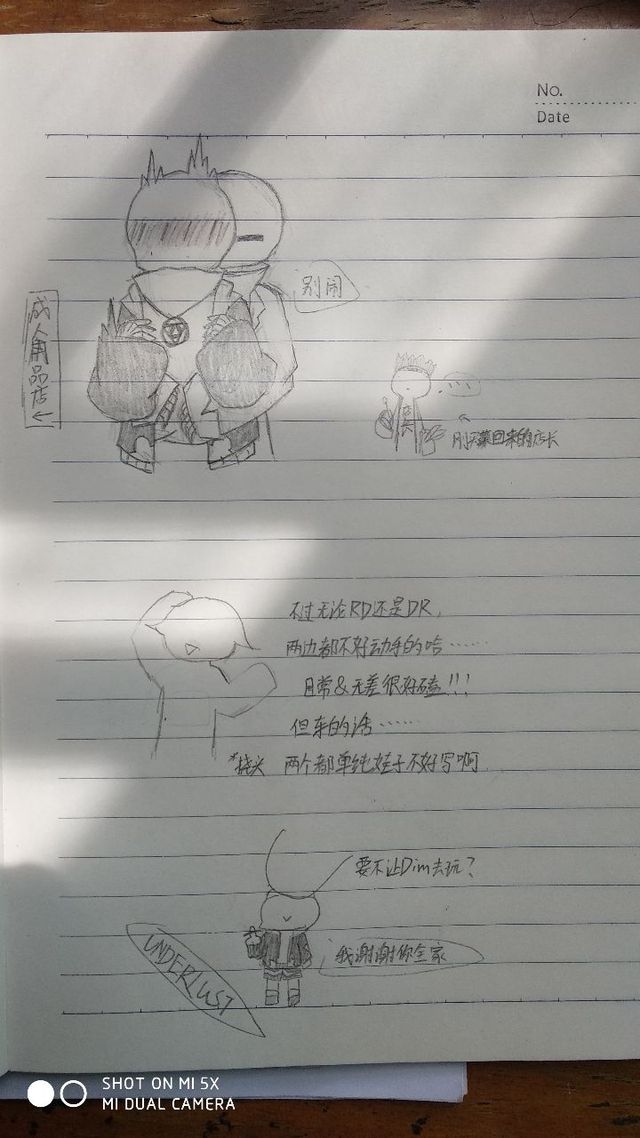 No.
Date
别闹
成人用品店
刚买菜回来的店长
不过无论RD还是DR,
两边都不好动手的啥……
日常&无差很好磕!!!
但车的话……
*挠头 两个都单纯娃子不好写啊
要不让Dim去玩?
我谢谢你全家
UNDERLUST
SHOT ON MI 5X
MI DUAL CAMERA